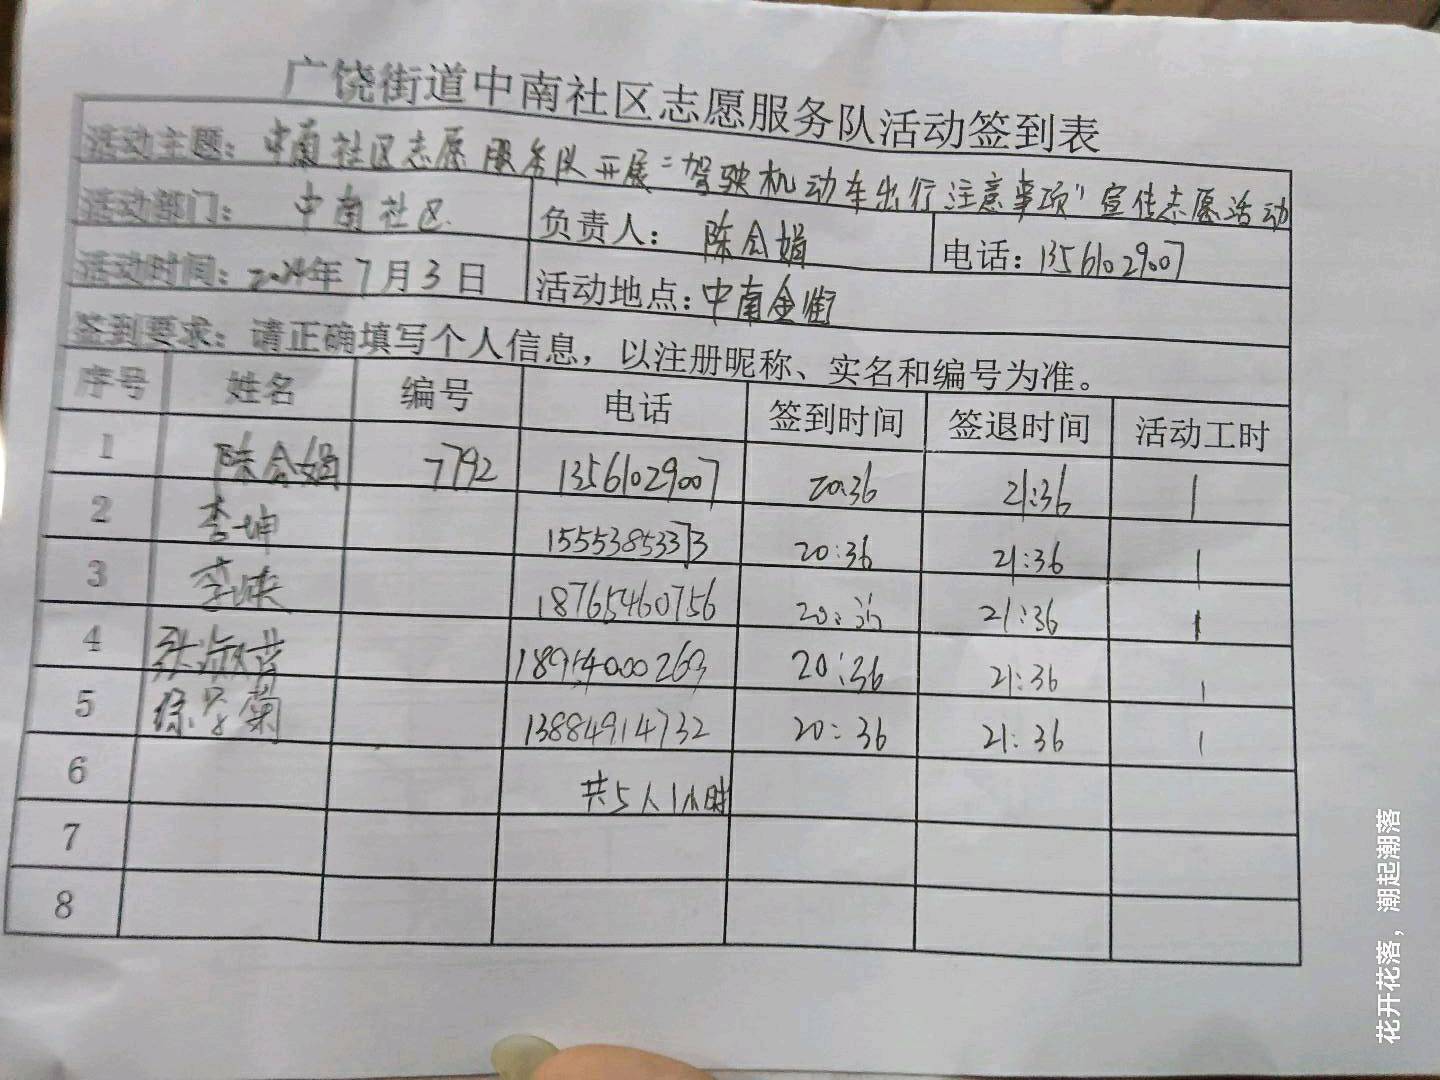 广饶街道中南社区志愿服务队活动签到表
活动主题：中南社区志愿服务队开展“驾驶机动车出行注意事项”宣传志愿活动
活动部门：中南社区 负责人：陈会娟 电话：13561029007
活动时间：2024年7月3日 活动地点：中南金街
签到要求：请正确填写个人信息，以注册昵称、实名和编号为准。
序号 姓名 编号 电话 签到时间 签退时间 活动工时
1 陈会娟 7792 13561029007 20:36 21:36 1
2 李坤 15553853373 20:36 21:36 1
3 18765460756 20:36 21:36 1
4 20:36 21:36 1
5 13884914732 20:36 21:36 1
6 共5人1小时
7
8
花开花落，潮起潮落